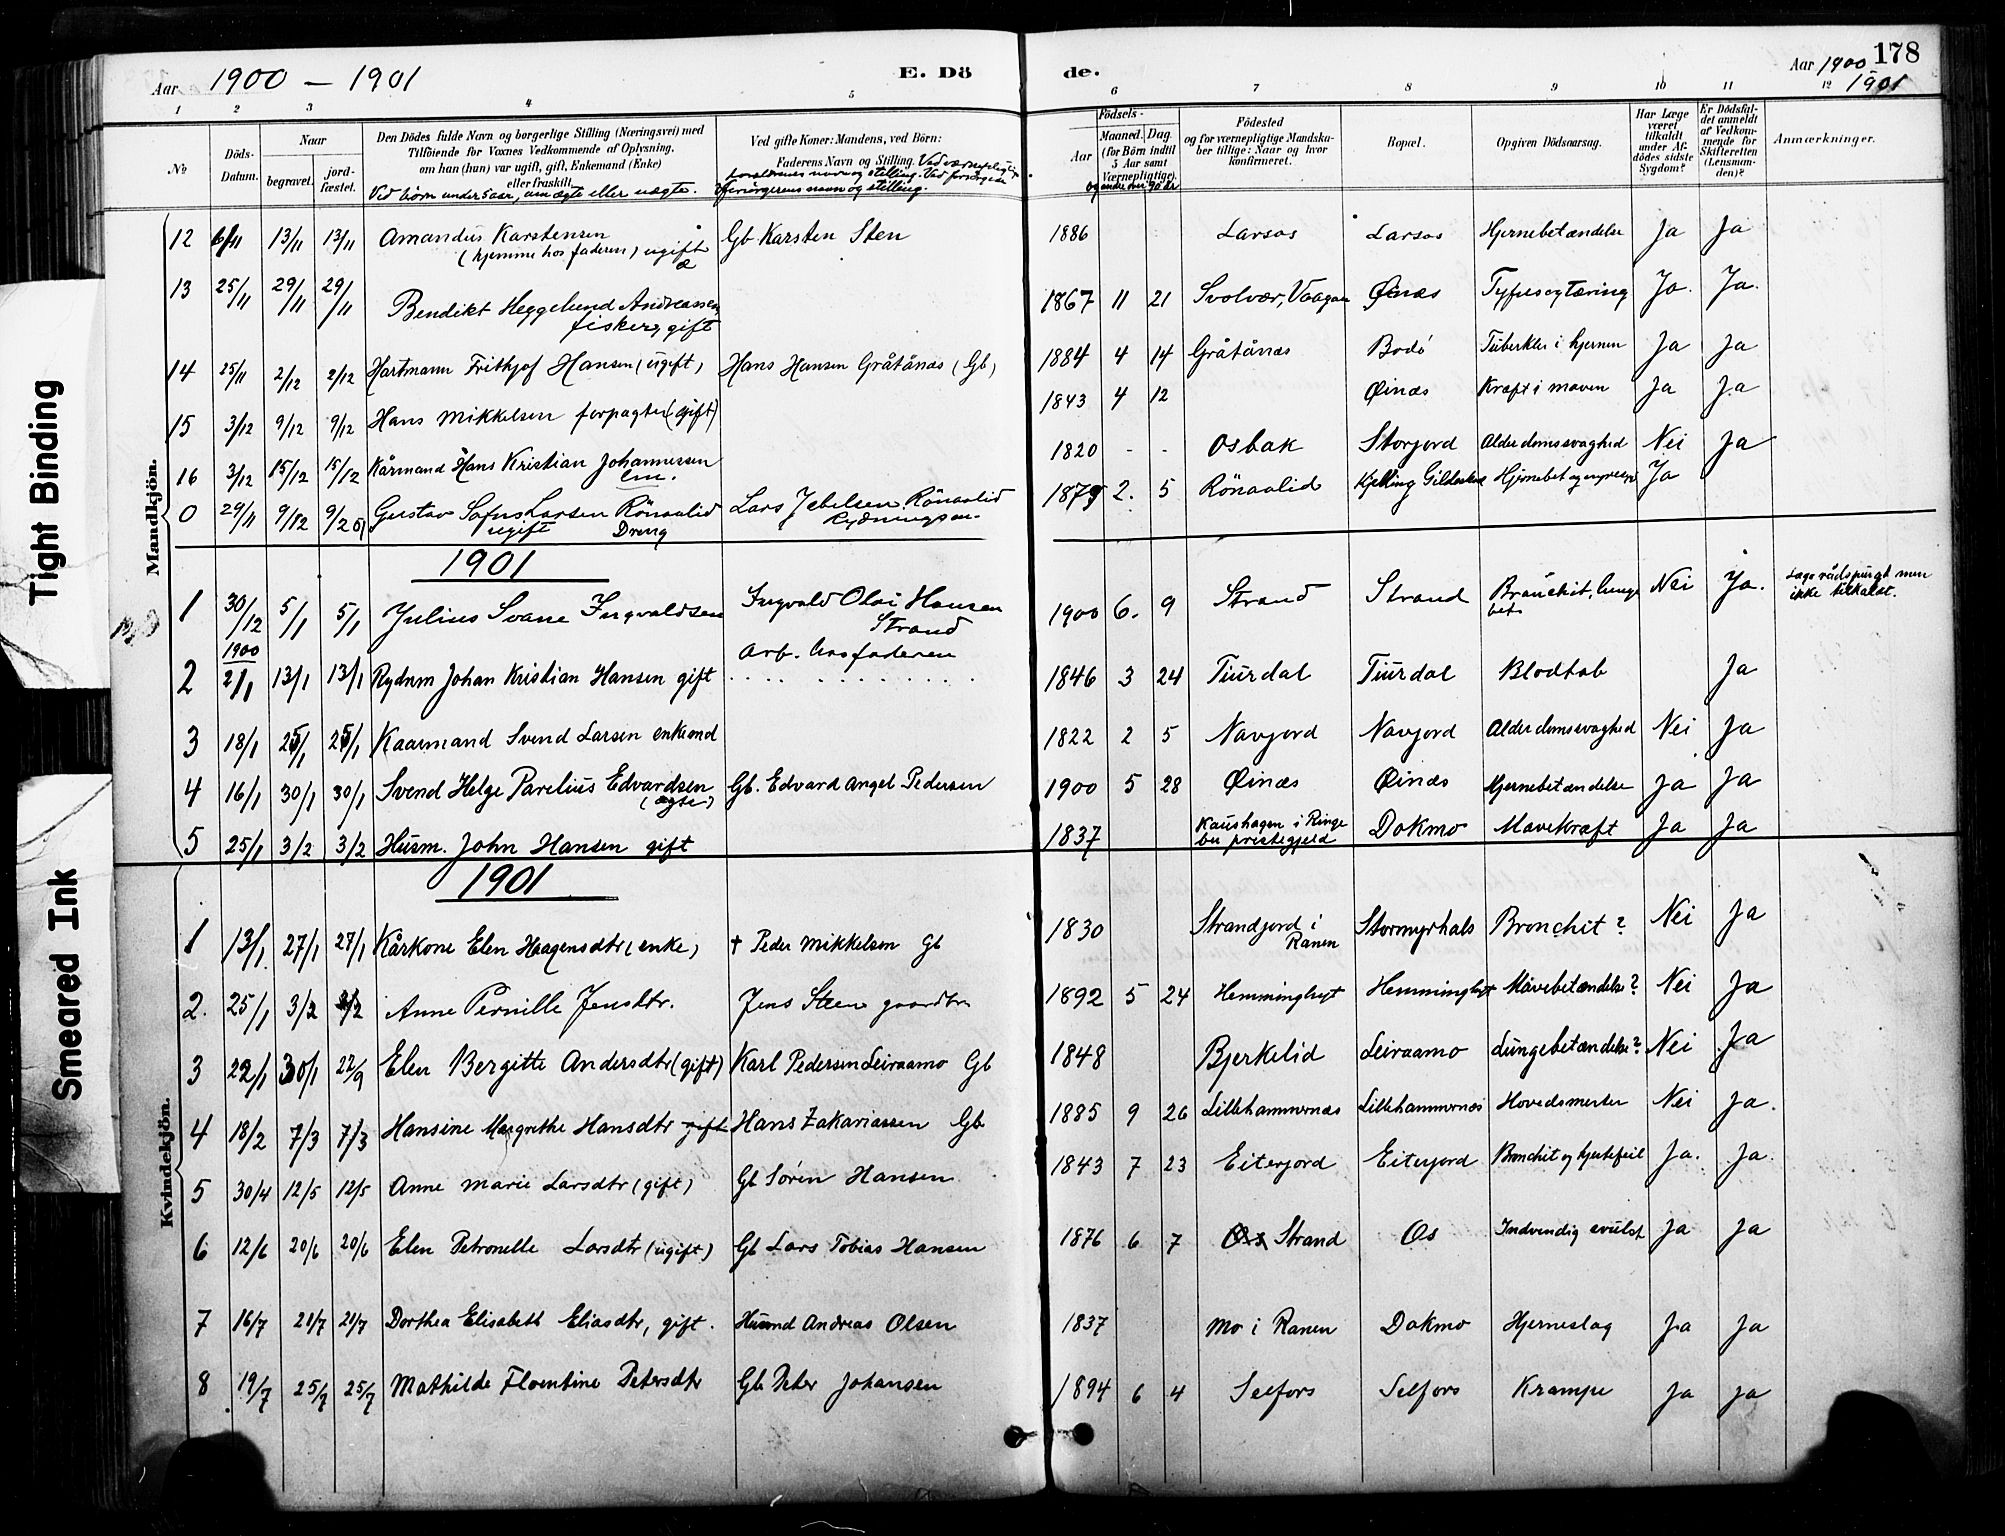 Tight Binding
Smeared Ink
Aar 1900 – 1901
E. Dö
de.
Aar 1900 178
1901
1 2 3 4 5 6 7 8 9 10 11 12
No
Döds-Datum.
Naar
begravet.
jord-fæstet.
Den Dödes fulde Navn og borgerlige Stilling (Næringsvei) med
Tilföiende for Voxnes Vedkommende af Oplysning,
om han (han) var ugift, gift, Enkemand (Enke)
eller fraskilt.
Ved börn under 5 aar, om ægte eller uægte.
Ved gifte Koner: Mandens, ved Börn:
Faderens Navn og Stilling.
Födsels-
Aar
Maaned.
Dag.
(for Börn indtil
5 Aar samt
Værnepligtige).
Födested
og for værnepligtige Mandska-
ber tillige: Naar og hvor
konfirmeret.
Bopæl.
Opgiven Dödsaarsag.
Har Læge
været
tilkaldt
under Af-
dödes sidste
Sygdom?
Er Dödsfal-
det anmeldt
af Vedkom-
mende for
Skifteretten
(Lensman-
den)?
Anmærkninger.
Mandkjön.
12 6/11 13/11 13/11 Amandus Karstensen Gb Karsten Sten 1886 Larsos Larsos Hjernebetændelse Ja Ja
(hjemme hos faderen) ugift
æ
13 25/11 29/11 29/11 Bendikt Heggelund Andreassen 1867 11 21 Svolvær, Vaagan Øinæs Tyfus og tæring Ja. Ja.
fisker, gift
14 25/11 2/12 2/12 Hartmann Frithjof Hansen (ugift) Hans Hansen Gråtånæs (Gb) 1884 4 14 Gråtånæs Bodö Tuberkler i hjernen Ja Ja
15 3/12 9/12 9/12 Hans Mikkelsen forpagter (gift) 1843 4 12 Øinæs Kræft i maven Ja Ja
16 3/12 15/12 15/12 Kårmand Hans Kristian Johannessen 1820 - - Osbak Storjord Alderdomssvaghed Nei Ja
em.
0 29/11 9/12 9/2 01 Gustav Sofus Larsen Rönaalid Lars Jebelsen Rönaalid 1879 2. 5 Rönaalid Kjelling Gildeskaal Ja
ugift Dreng Rydningsm.
1901
1 30/12 1900 5/1 5/1 Julius Svane Ingvaldsen Ingvald Olai Hansen Strand 1900 6. 9 Strand Strand Bronchit, lunge bet Nei Ja. Læge rådspurgt men
ikke tilkaldt.
Arb. hos faderen
2 2/1 13/1 13/1 Rydnm Johan Kristian Hansen gift 1846 3 24 Tiurdal Tiurdal Blodtab Ja
3 18/1 25/1 25/1 Kaarmand Svend Larsen enkemd 1822 2 5 Navjord Navjord Alderdomssvaghed Nei Ja
4 16/1 30/1 30/1 Svend Helge Parelius Edvardsen Gb. Edvard Angel Pedersen 1900 5 28 Øinæs Øinæs Hjernebetændelse Ja Ja
(ægte)
5 25/1 3/2 3/2 Husm. John Hansen gift 1837 Kaushagen i Ringe Dokmo Mavekræft Ja Ja
bu prestegjeld
Kvindekjön.
1901
1 13/1 27/1 27/1 Kårkone Elen Haagensdtr (enke) † Peder Mikkelsen Gb 1830 Strandjord i Ranen Stormyrhals Bronchit? Nei Ja
2. 25/1 3/2 3/2 Anne Pernille Jensdtr. Jens Steen gaardbr 1892 5 24 Hemminghyt Hemminghyt Mavebetændelse? Nei Ja
3 22/1 30/1 22/9 Elen Bergitte Andersdtr (gift) Karl Pedersen Leiraamo Gb 1848 Bjerkelid Leiraamo Lungebetændelse? Nei Ja
4 18/2 7/3 7/3 Hansine Margrethe Hansdtr gift Hans Zakariassen Gb 1885 9 26 Lillehammernæs Lillehammernæs Hovedsmerter Nei Ja.
5 30/4 12/5 12/5 Anne Marie Larsdtr (gift) Gb Sörin Hansen 1843 7 23 Eiterjord Eiterjord Bronchit og hjertefeil Ja. Ja.
6 12/6 20/6 20/6 Elen Petronelle Larsdtr (ugift) Gb Lars Tobias Hansen 1876 6 7 Os Strand Os Indvendig svulst Ja Ja
7 16/7 21/7 21/7 Dorthea Elisabeth Eliasdtr, gift. Husmd Andreas Olsen 1837 Mo i Ranen Dokmo Hjerneslag Ja Ja
8 19/7 25/7 25/7 Mathilde Florentine Petersdtr Gb Peter Johansen 1894 6 4 Selfors Selfors Krampe Ja Ja